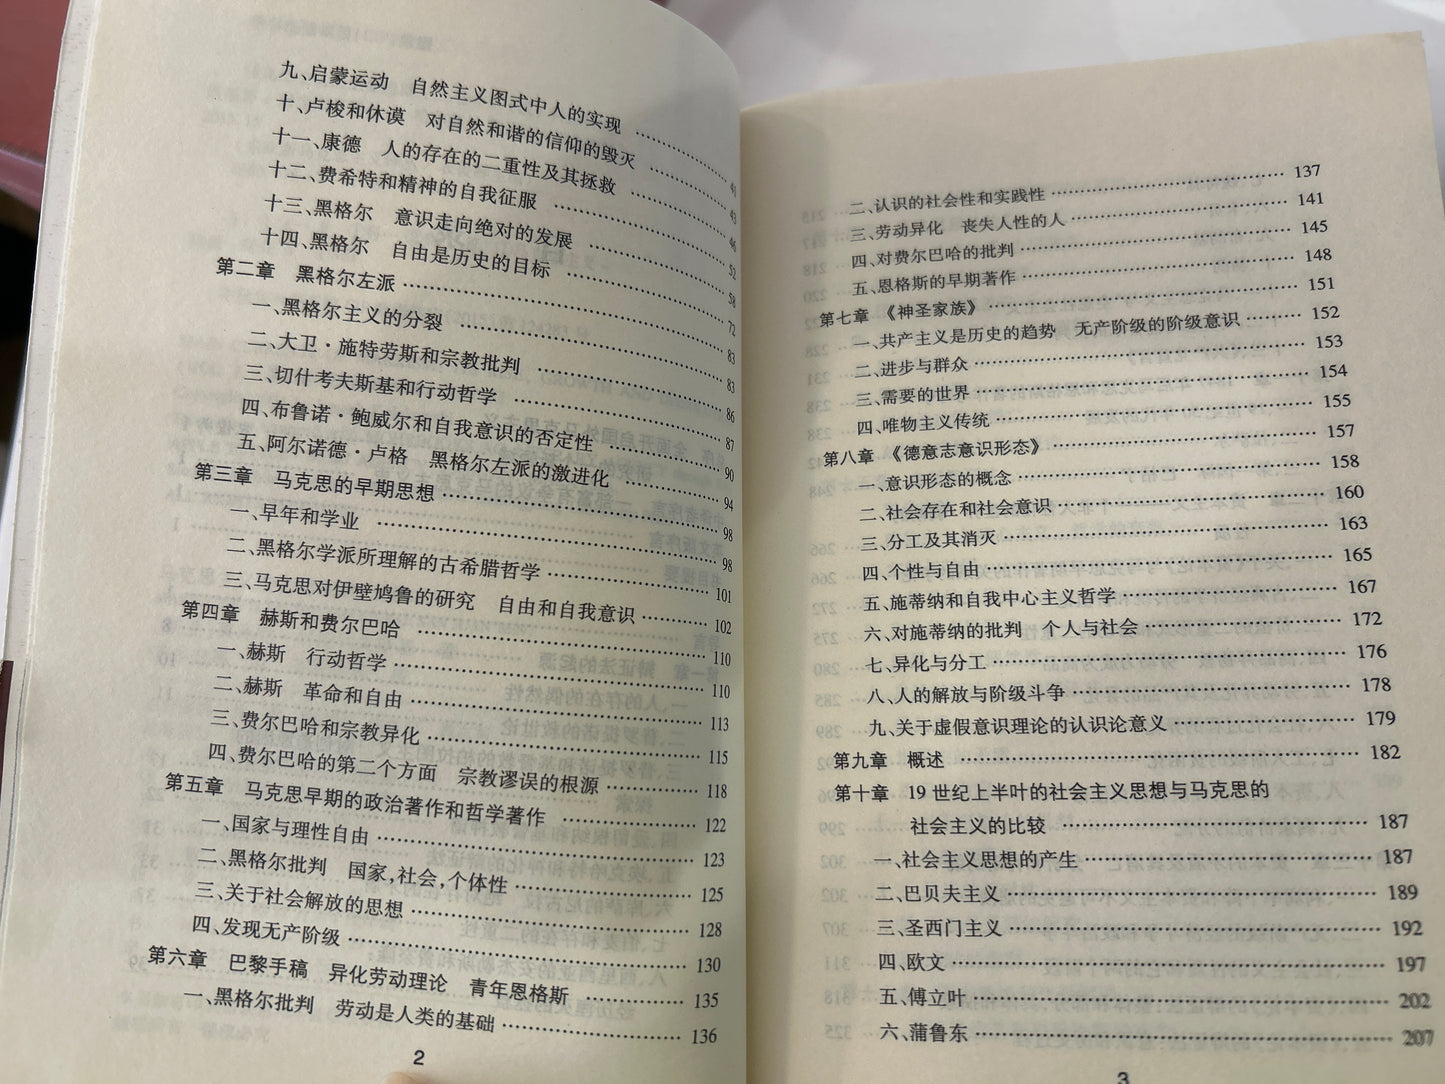 九、启蒙运动　自然主义图式中人的实现 …… 41
十、卢梭和休谟　对自然和谐的信仰的毁灭 …… 43
十一、康德　人的存在的二重性及其拯救 …… 46
十二、费希特和精神的自我征服 …… 52
十三、黑格尔　意识走向绝对的发展 …… 58
十四、黑格尔　自由是历史的目标 …… 72
第二章　黑格尔左派 …… 83
一、黑格尔主义的分裂 …… 83
二、大卫·施特劳斯和宗教批判 …… 86
三、切什考夫斯基和行动哲学 …… 87
四、布鲁诺·鲍威尔和自我意识的否定性 …… 90
五、阿尔诺德·卢格　黑格尔左派的激进化 …… 94
第三章　马克思的早期思想 …… 98
一、早年和学业 …… 98
二、黑格尔学派所理解的古希腊哲学 …… 101
三、马克思对伊壁鸠鲁的研究　自由和自我意识 …… 102
第四章　赫斯和费尔巴哈 …… 110
一、赫斯　行动哲学 …… 110
二、赫斯　革命和自由 …… 113
三、费尔巴哈和宗教异化 …… 115
四、费尔巴哈的第二个方面　宗教谬误的根源 …… 118
第五章　马克思早期的政治著作和哲学著作 …… 122
一、国家与理性自由 …… 123
二、黑格尔批判　国家,社会,个体性 …… 125
三、关于社会解放的思想 …… 128
四、发现无产阶级 …… 130
第六章　巴黎手稿　异化劳动理论　青年恩格斯 …… 135
一、黑格尔批判　劳动是人类的基础 …… 136
2
二、认识的社会性和实践性 …… 137
三、劳动异化　丧失人性的人 …… 141
四、对费尔巴哈的批判 …… 145
五、恩格斯的早期著作 …… 148
第七章　《神圣家族》 …… 151
一、共产主义是历史的趋势　无产阶级的阶级意识 …… 152
二、进步与群众 …… 153
三、需要的世界 …… 154
四、唯物主义传统 …… 155
第八章　《德意志意识形态》 …… 157
一、意识形态的概念 …… 158
二、社会存在和社会意识 …… 160
三、分工及其消灭 …… 163
四、个性与自由 …… 165
五、施蒂纳和自我中心主义哲学 …… 167
六、对施蒂纳的批判　个人与社会 …… 172
七、异化与分工 …… 176
八、人的解放与阶级斗争 …… 178
九、关于虚假意识理论的认识论意义 …… 179
第九章　概述 …… 182
第十章　19 世纪上半叶的社会主义思想与马克思的
社会主义的比较 …… 187
一、社会主义思想的产生 …… 187
二、巴贝夫主义 …… 189
三、圣西门主义 …… 192
四、欧文 …… 197
五、傅立叶 …… 202
六、蒲鲁东 …… 207
3